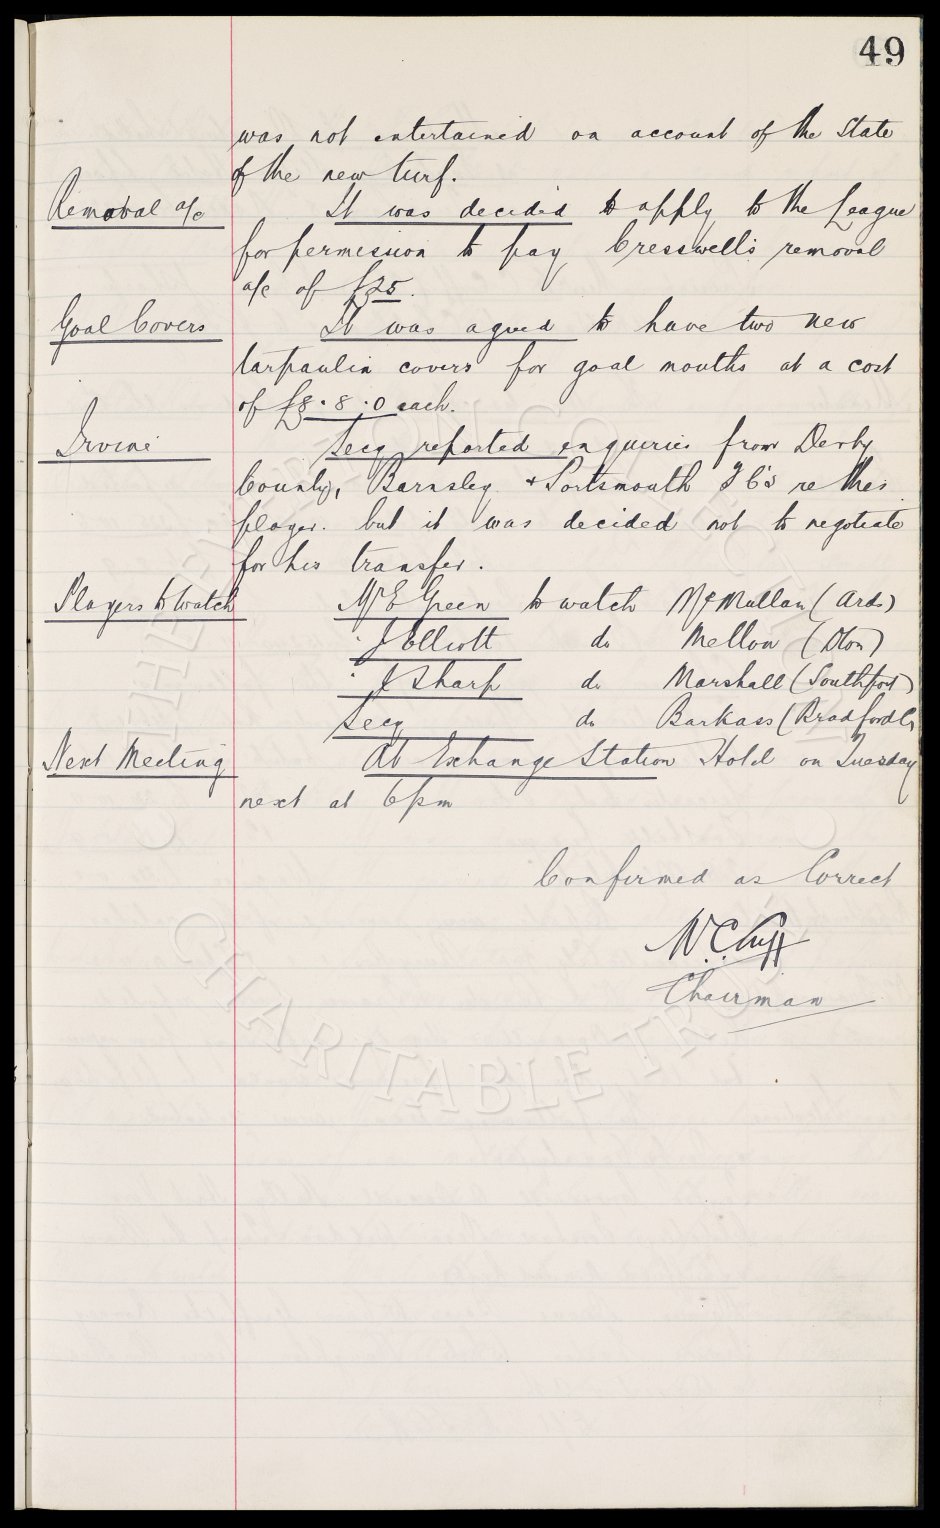 49
was not entertained on account of the State
of the new turf.
Removal a/c It was decided to apply to the League
for permission to pay Cresswell's removal
a/c of £25.
Goal Covers It was agreed to have two new
tarpaulin covers for goal mouths at a cost
of £8.8.0 each.
Irvine Secy reported enquiries from Derby
County, Barnsley & Portsmouth FC's re this
player. but it was decided not to negotiate
for his transfer.
Players to Watch Mr E Green to watch McMullan (Ards)
" J Elliott do Mellon (Dton)
" J Sharp do Marshall (Southport)
Secy do Barkass (Bradford C)
Next Meeting At Exchange Station Hotel on Tuesday
next at 6pm
Confirmed as Correct
W.C. Cuff
Chairman
THE EVERTON COLLECTION
CHARITABLE TRUST